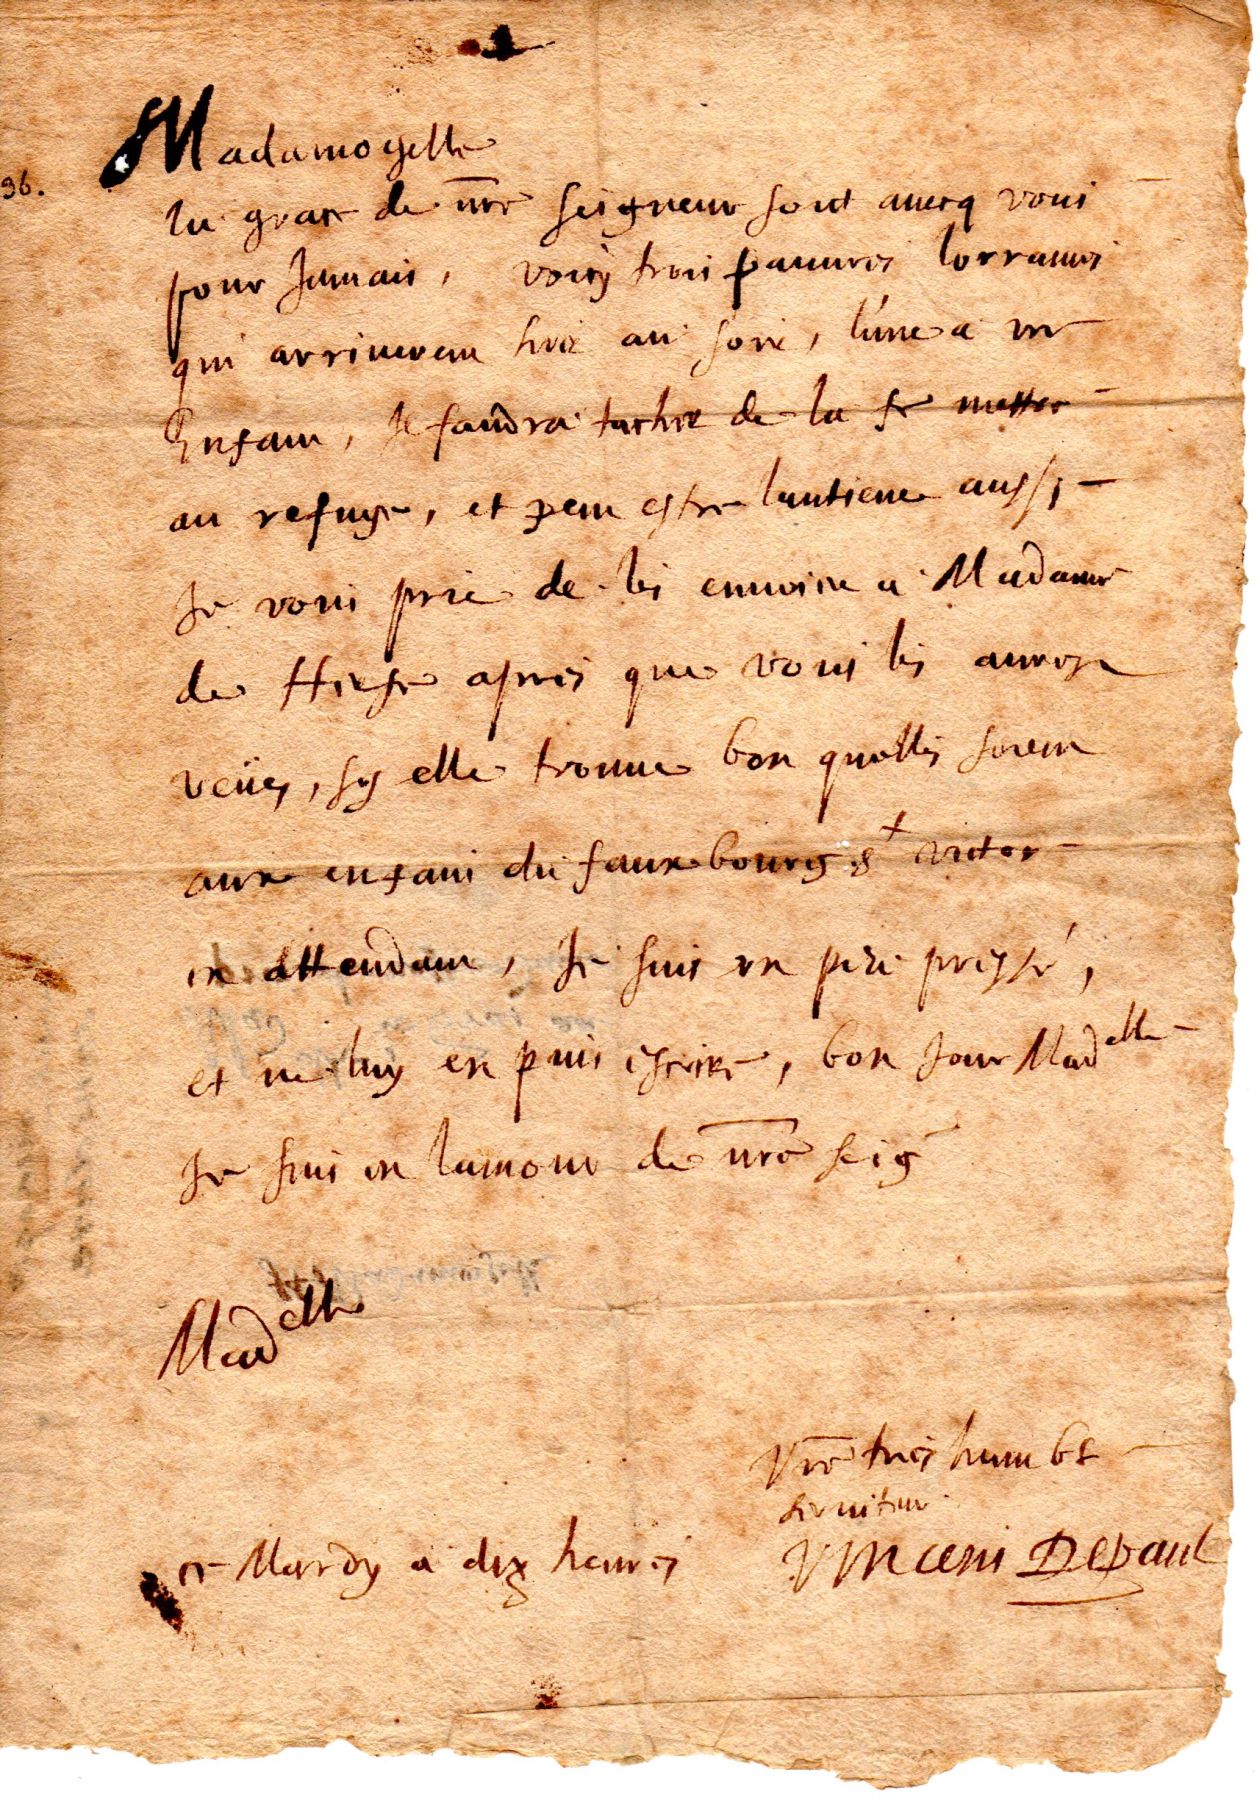 Madamoyselle
36.
la grace de nre seigneur soit auecq vous
pour Jamais, voicy trois pauures lorraines
qui arriuerent hier au soir, l'une a un
Enfant, Il faudra tascher de la mettre
au refuge, et peut estre lantiene aussy
Je vous prie de les enuoier a Madame
de Herse apres que vous les aurez
veües, sy elle trouue bon quelles soient
aux enfans du faux bourg st victor
en attendant, Je suis un peu pressé,
et ne luy en puis escrire, bon Jour Madelle
Je suis en lamour de nre seig
Madelle
Vre tres humble
seruiteur
Vincent Depaul
ce Mardy a dix heures